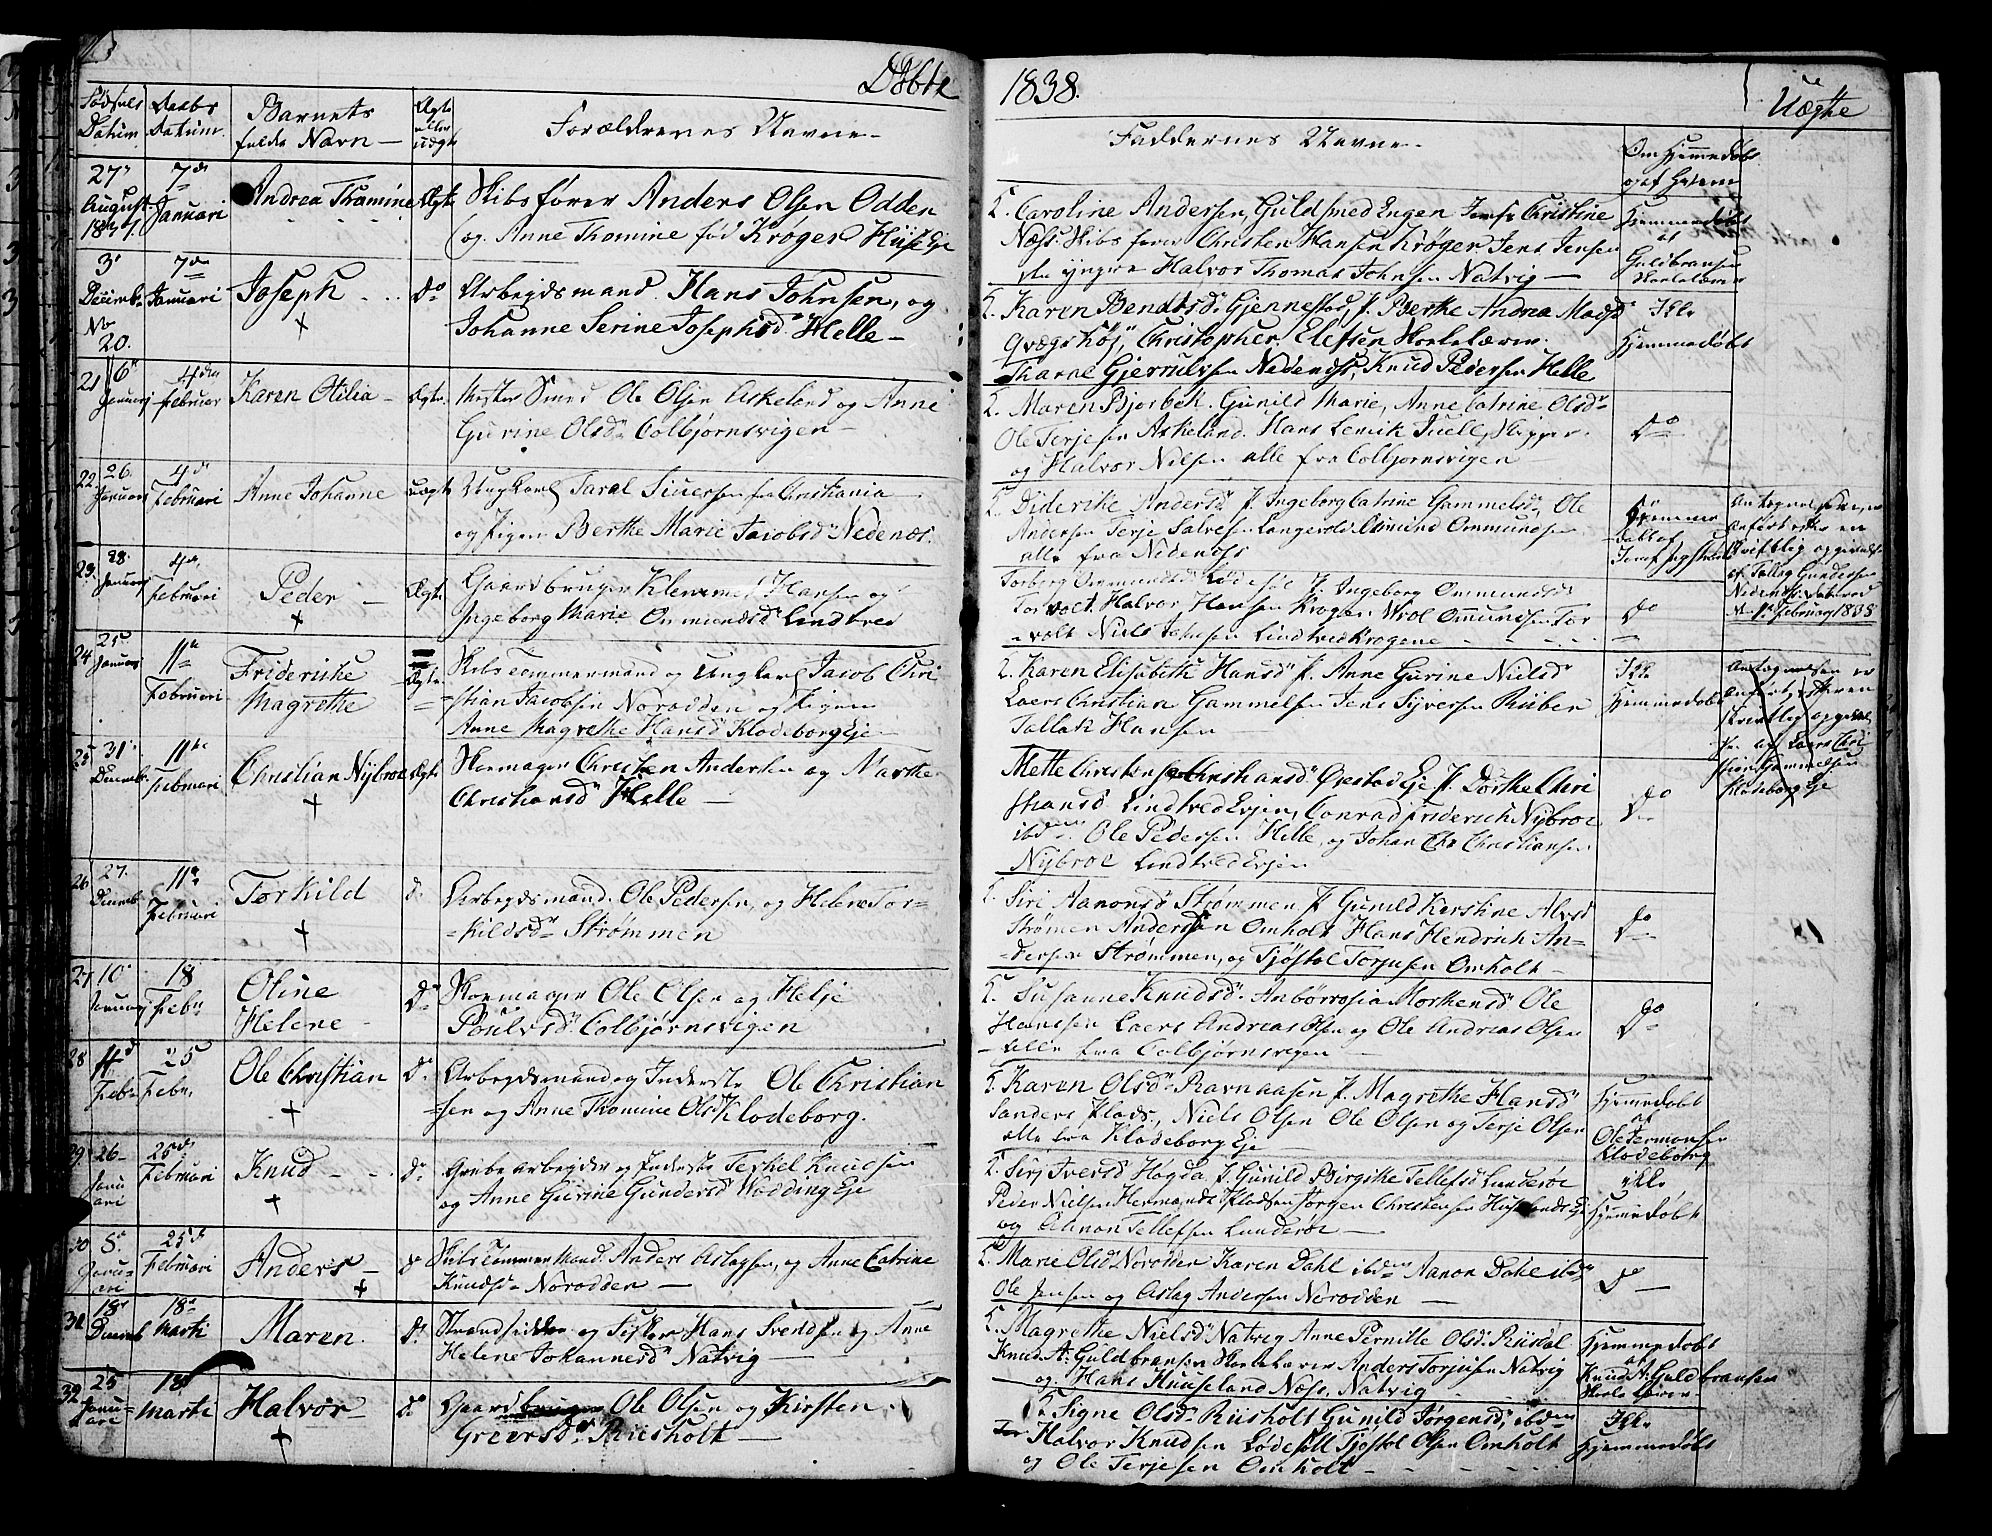 Døbte
1838.
Uægte
Fødsels Datum
Daabs Datum.
Barnets fulde Navn
Ægte eller uægt
Forældrenes Navne
Faddernes Navne
Om Hjemmedøbt og af hvem
27 August 1837.
7de Januari
Andrea Thomine
Ægte
Skibsfører Anders Olsen Odden
og Anne Thomine fød Krøger
Caroline Andersen, Guldsmed Engen Jomf Christine
Næss. Skibsfører Christen Hansen Krøger Jens Jensen
den yngre Halvor Thomas Johnsen Natvig
Hjemmedøbt
af
Guldbransen
Skolelærer
3
Decembr
No 20.
7de Januari
Joseph
Do
Arbeydsmand Hans Johnsen, og
Johanne Serine Josephsd Helle
Karen Bendtsd Gjennestad, P. Berthe Andrea
Christopher Elefsen Skolelærer
Knud Pedersen Helle
Ikke
Hjemmedøbt
21
6 Januarj
4de Februar
Karen Otilia
Ægte
Mester Smed Ole Olsen Askeland og Anne
Gurine Olsd Colbjørnsvigen
Maren Bjorbek. Gunild Marie, Anne Catrine Olsd
Ole Terjesen Askeland. Hans Lemik Juell, Skipper
og Halvor Nilsen alle fra Colbjørnsvigen
Do
22.
26. Januarj
4de Februari
Anne Johanne
uægte
Ungkarl Taral Siversen fra Christiania
og Pigen Berthe Marie Jacobsd Nedenæs.
Diderikke Andersd P. Ingeborg Catrine Gammelsd Ole
Andersen Terje Salvesen Langerold Omund Ommundsen
alle fra Nedenæs
Do
Hjemme
døbt af
Antegnelsen er
anført efter en
skriftlig opgivelse
af Tallag Gundersen
Nedenæs dateret
den 1 Februarj 1838
23.
28. Januarj
4de Februari
Peder
Ægte
Gaardbruger Klemmet Hansen og
Ingeborg Marie Ommundsd Lindtved
Torborg Ommundsd P. Ingeborg Ommundsd
Torvolt. Halvor Hansen Krogen Wrol Omundsen Tor
volt Niels Johnsen Lindtved Krogene
Do
24
25 Januarj
11te Februari
Friderikke
Magrethe
Ægte
Skibstømmermand og Ungkarl Jacob Chri
stian Jacobsen Norodden og Pigen
Anne Magrethe Hansd Klodeborg Eje
Karen Elisabeth Hansd P. Anne Gurine Nielsd
Laers Christian Gammelsen Jens Syversen Rüber
Tallak Hansen
Ikke
Hjemmedøbt
Antegnelsen er
anført efter en
skriftlig opgivel
se af Laers Chri
stian Gammelsen
Klodeborg Eje
25
31 Decembr
11te Februari
Christian Nybroe
Ægte
Skomager Christen Andersen og Marthe
Christiansd Helle
Mette Christense Christiansd Ørestad Eje P. Dorthe Chri
stiansd Lindtved Evjen, Conrad Friderich Nybroe
ibdm Ole Pedersen Helle, og Johan Chr Christiansen
Nybroe Lindtved Evjen
Do
26
27. Decemb
11te Februari
Torkild
Do
Arbeydsmand Ole Pedersen, og Helene Tor-
kildsd Strømmen
Siri Aanonsd Strømmen P. Gunild Kerstine Alvsd
Strømen Anderssen Omholt Hans Hendrich An-
dersen Strømmen, og Tjøstol Torjusen Omholt
Do
27
10 Januarj
18 Febr
Oline
Helene
Do
Skomager Ole Olsen og Helje
Poulsd Colbjørnsvigen
Susanne Knudsd. Anbørrosia Mortensd Ole
Hanssen Laers Andreas Olsen og Ole Andreas Olsen
alle fra Colbjørnsvigen
Do
28
4de Febr
25 Febr
Ole Christian
Do
Arbeydsmand og Inderste Ole Christian
sen og Anne Thomine Olsd Klodeborg.
Karen Olsd Ravnaasen P. Magrethe Hansd
Sanders Plads, Niels Olsen Ole Olsen og Terje Olsen
alle fra Klodeborg Eje
Hjemmedøbt
af
Ole Termonsen
Klodeborg
29
26 Januari
25de Februari
Knud
Do
Grubearbeyder og Inderste Terkel Knudsen
og Anne Gurine Gundersd Wødding Eje
Sirj Iversd Høgda, P. Gunild Birgithe Tellefsd Lunderøe
Peder Nielsen Hermands Pladsen Jørgen Christensen
og Aanon Tellefsen Lunderøe
ikke
Hjemmedøbt
30
5 Januari
25de Februari
Anders
Do
Skibstømmermand Anders Aslagsen, og Anne Catrine
Knudsd Norodden
Marie Olsd Norodden Karen Dahl ibdm Aanon Dahl ibdm
Ole Jensen og Aslag Andersen Norodden
Do
31
18 Decemb
18 Marti
Maren
Do
Strandsidder og Fisker Hans Svendsen og Anne
Helene Johannesd Natvig
Magrethe Nielsd Natvig Anne Pernille Olsd Riisdal
Knud A. Guldbransen Skolelærer Anders Torjusen Natvig
og Hans Huuseland Næss, Natvig
Hjemmedøbt
af
Knud A. Guldbransen
Skolelærer
32
25 Januari
18 Marti
Halvor
Do
Gaardbruger Ole Olsen og Kirsten
Greersd Riisholt
Signe Olsd Riisholt Gunild Jørgensd, ibdm
Halvor Knudsen Lødesøl Tjøstol Olsen Omholt
og Ole Terjesen Omholt
Ikke
Hjemmedøbt